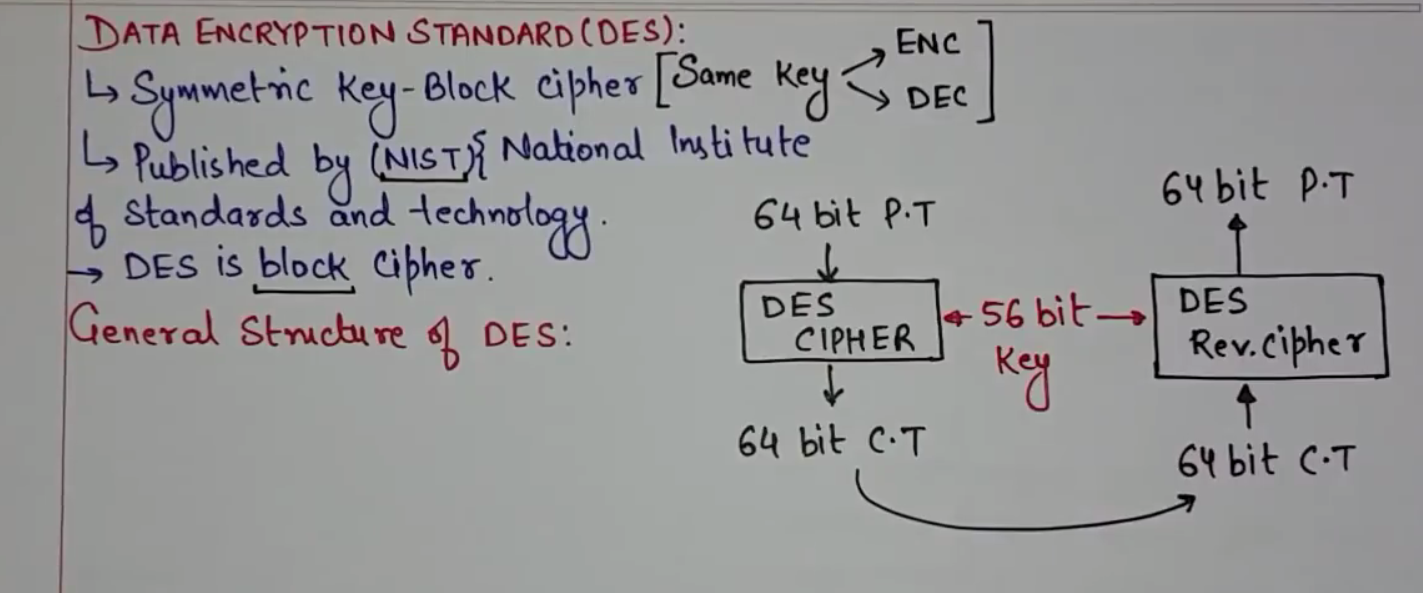 DATA ENCRYPTION STANDARD (DES):
↳ Symmetric Key-Block Cipher [Same Key ENC DEC]
↳ Published by (NIST){ National Institute
of Standards and technology.
→ DES is block Cipher.
General Structure of DES:
64 bit P.T
DES
CIPHER
64 bit C.T
56 bit
Key
64 bit P.T
DES
Rev. Cipher
64 bit C.T